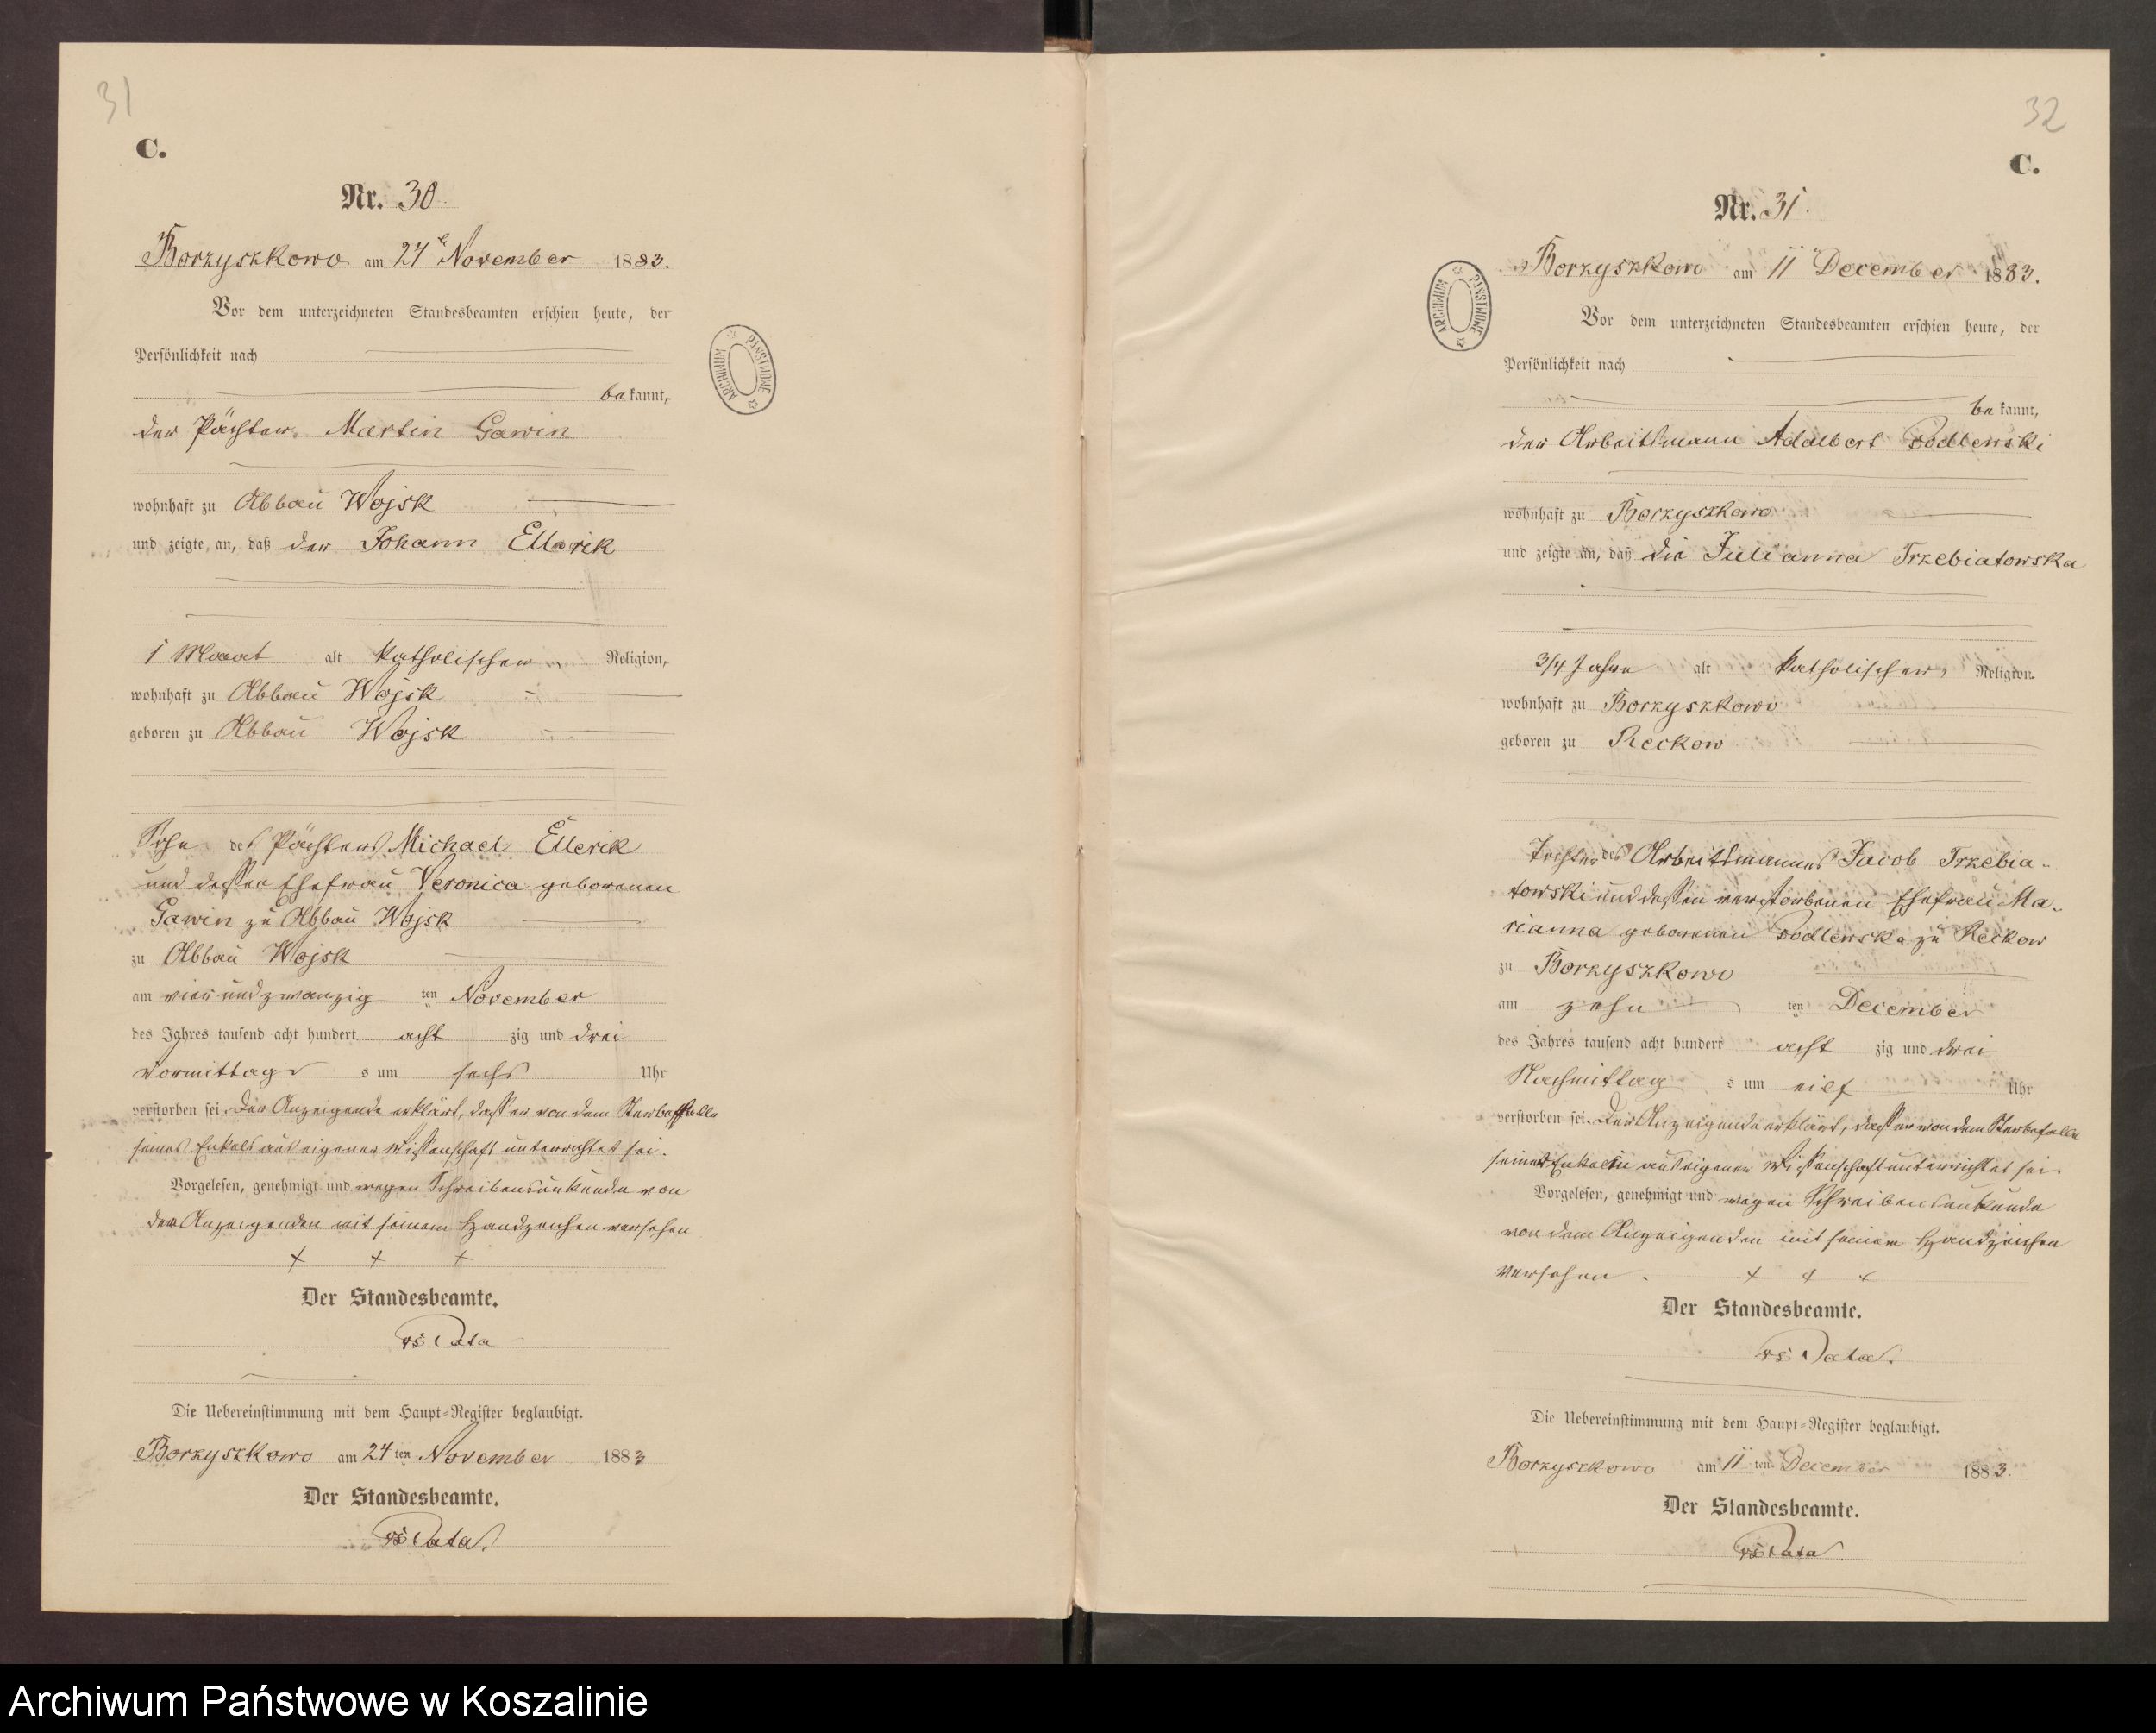 31
C.
Nr. 30.
Borzyszkowo am 24ten November 1883.
Vor dem unterzeichneten Standesbeamten erschien heute, der
Persönlichkeit nach
bekannt,
der Pächter Martin Gawin
wohnhaft zu Abbau Wojsk
und zeigte an, daß der Johann Ellerik
1 Monat alt katholischer Religion,
wohnhaft zu Abbau Wojsk
geboren zu Abbau Wojsk
Sohn des Pächters Michael Ellerik
und dessen Ehefrau Veronica geborenen
Gawin zu Abbau Wojsk
zu Abbau Wojsk
am vier und zwanzig ten November
des Jahres tausend acht hundert acht zig und drei
Vormittags um sechs Uhr
verstorben sei. Der Anzeigende erklärt, dass er von dem Sterbefalle
seines Enkels aus eigener Wissenschaft unterrichtet sei.
Vorgelesen, genehmigt und wegen Schreibensunkunde von
dem Anzeigenden mit seinem Handzeichen versehen
+ + +
Der Standesbeamte.
Die Uebereinstimmung mit dem Haupt-Register beglaubigt.
Borzyszkowo am 24 ten November 1883
Der Standesbeamte.
32
C.
Nr. 31.
Borzyszkowo am 11 December 1883.
Vor dem unterzeichneten Standesbeamten erschien heute, der
Persönlichkeit nach
bekannt,
der Arbeitsmann Adalbert Podlewski
wohnhaft zu Borzyszkowo
und zeigte an, daß die Julianna Trzebiatowska
3/4 Jahre alt katholischer Religion.
wohnhaft zu Borzyszkowo
geboren zu Reckow
Tochter des Arbeitsmannes Jacob Trzebia-
towski und dessen verstorbenen Ehefrau Ma-
rianna geborenen Podlewska zu Reckow
zu Borzyszkowo
am zehn ten December
des Jahres tausend acht hundert acht zig und drei
Nachmittag s um eilf Uhr
verstorben sei. Der Anzeigende erklärt, dass er von dem Sterbefalle
seiner Enkelin aus eigener Wissenschaft unterrichtet sei.
Vorgelesen, genehmigt und wegen Schreibensunkunde
von dem Anzeigenden mit seinem Handzeichen
versehen. + + +
Der Standesbeamte.
Die Uebereinstimmung mit dem Haupt-Register beglaubigt.
Borzyszkowo am 11 ten December 1883.
Der Standesbeamte.
ARCHIWUM PAŃSTWOWE
ARCHIWUM PAŃSTWOWE
Archiwum Państwowe w Koszalinie